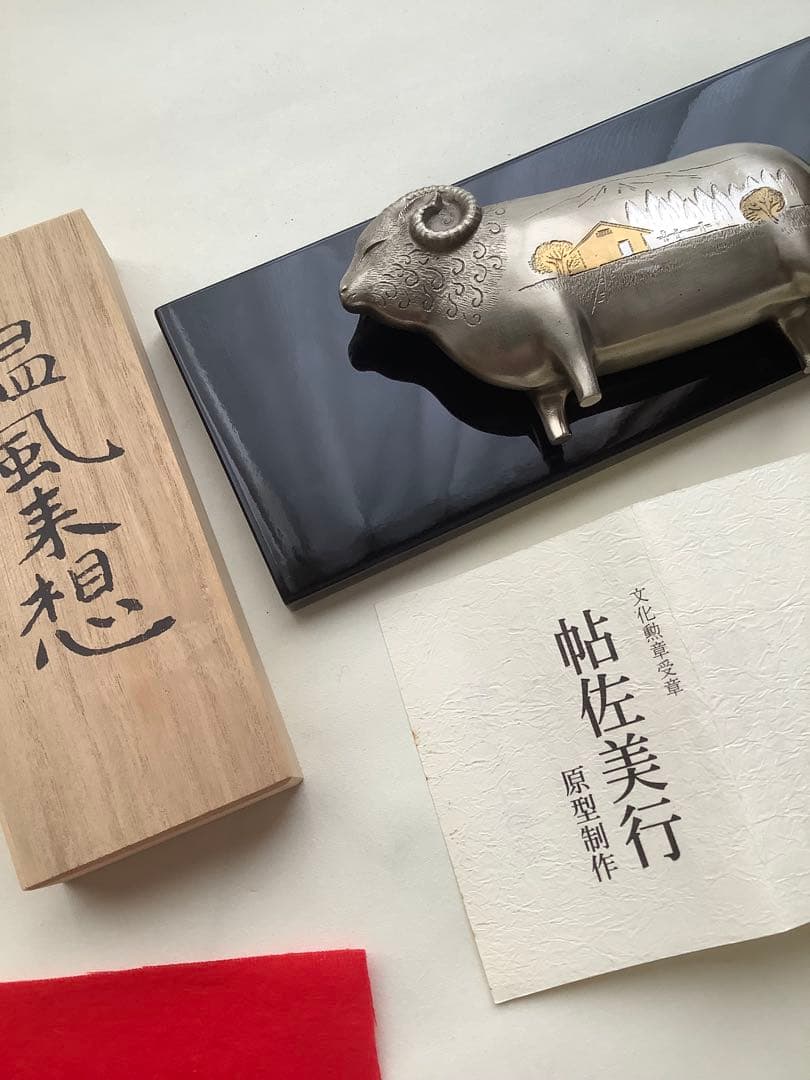 温風来想
文化勲章受章
帖佐美行
原型制作